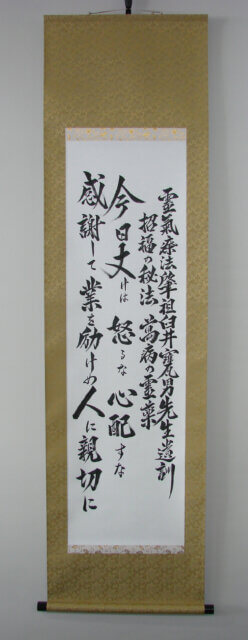 靈氣療法肇祖臼井甕男先生遺訓
招福の秘法 萬病の靈藥
今日丈けは 怒るな 心配すな
感謝して 業を励け め 人に親切に